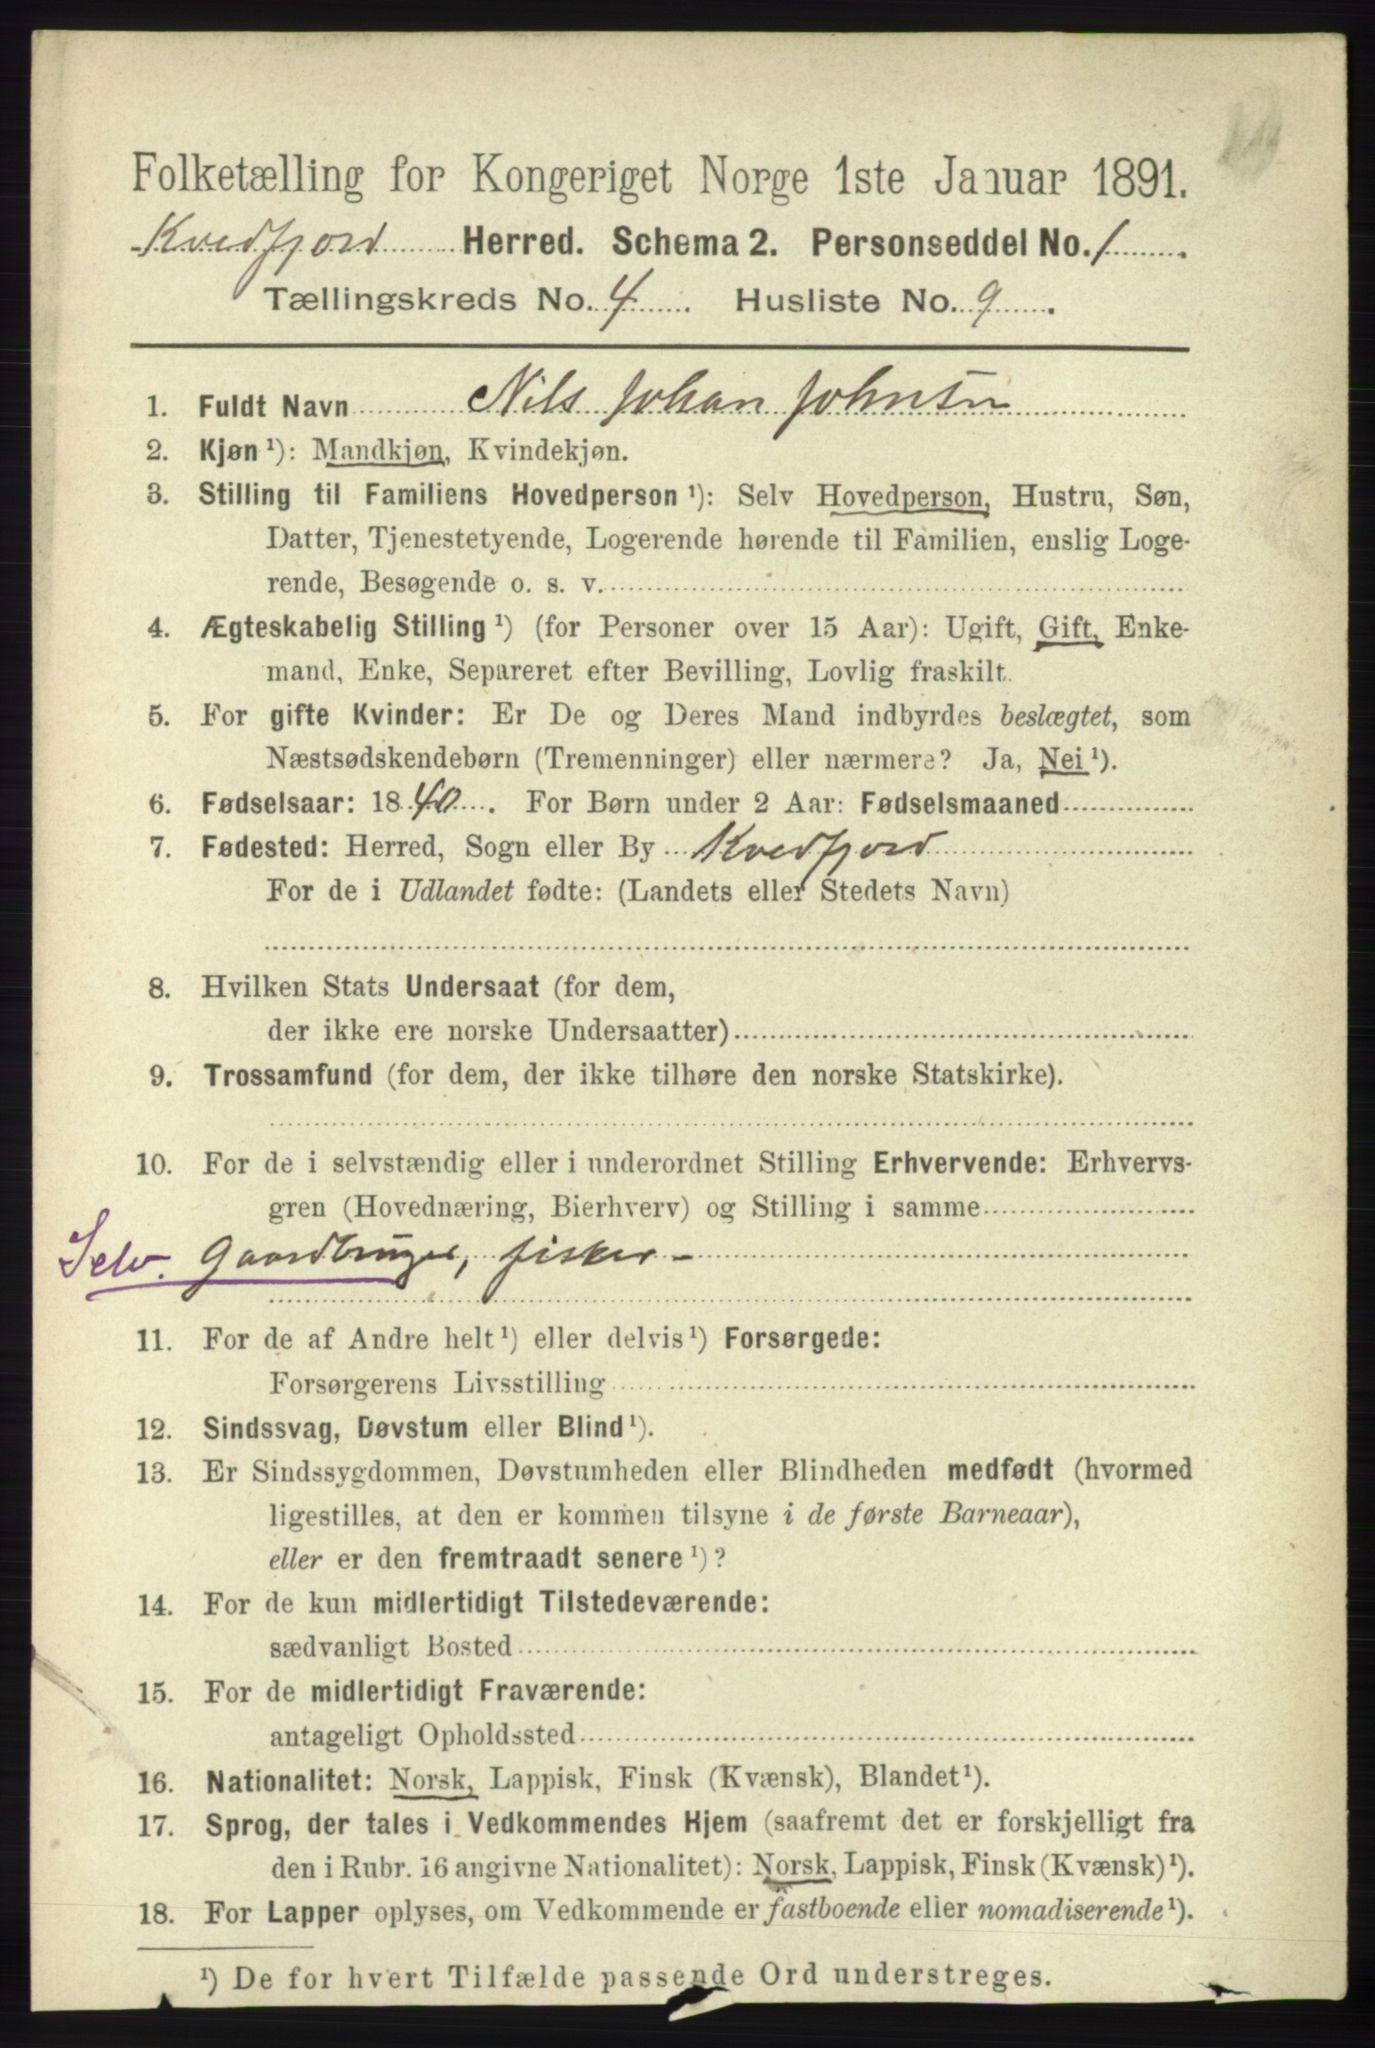 Folketælling for Kongeriget Norge 1ste Januar 1891.
Kvedfjord Herred. Schema 2. Personseddel No. 1.
Tællingskreds No. 4. Husliste No. 9.
1. Fuldt Navn Nils Johan Johnsen
2. Kjøn ¹): Mandkjøn, Kvindekjøn.
3. Stilling til Familiens Hovedperson ¹): Selv Hovedperson, Hustru, Søn,
Datter, Tjenestetyende, Logerende hørende til Familien, enslig Loge-
rende, Besøgende o. s. v.
4. Ægteskabelig Stilling ¹) (for Personer over 15 Aar): Ugift, Gift, Enke-
mand, Enke, Separeret efter Bevilling, Lovlig fraskilt.
5. For gifte Kvinder: Er De og Deres Mand indbyrdes beslægtet, som
Næstsødskendebørn (Tremenninger) eller nærmere? Ja, Nei ¹).
6. Fødselsaar: 1840. For Børn under 2 Aar: Fødselsmaaned
7. Fødested: Herred, Sogn eller By Kvedfjord
For de i Udlandet fødte: (Landets eller Stedets Navn)
8. Hvilken Stats Undersaat (for dem,
der ikke ere norske Undersaatter)
9. Trossamfund (for dem, der ikke tilhøre den norske Statskirke).
10. For de i selvstændig eller i underordnet Stilling Erhvervende: Erhvervs-
gren (Hovednæring, Bierhverv) og Stilling i samme
Selv. Gaardbruger, fisker -
11. For de af Andre helt ¹) eller delvis ¹) Forsørgede:
Forsørgerens Livsstilling
12. Sindssvag, Døvstum eller Blind ¹).
13. Er Sindssygdommen, Døvstumheden eller Blindheden medfødt (hvormed
ligestilles, at den er kommen tilsyne i de første Barneaar),
eller er den fremtraadt senere ¹)?
14. For de kun midlertidigt Tilstedeværende:
sædvanligt Bosted
15. For de midlertidigt Fraværende:
antageligt Opholdssted
16. Nationalitet: Norsk, Lappisk, Finsk (Kvænsk), Blandet ¹).
17. Sprog, der tales i Vedkommendes Hjem (saafremt det er forskjelligt fra
den i Rubr. 16 angivne Nationalitet): Norsk, Lappisk, Finsk (Kvænsk) ¹).
18. For Lapper oplyses, om Vedkommende er fastboende eller nomadiserende ¹).
¹) De for hvert Tilfælde passende Ord understreges.